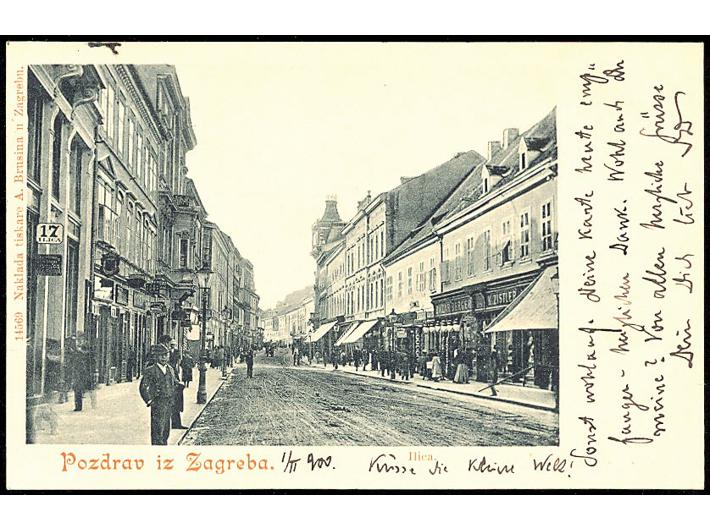 14569 Naklada tiskare A. Brusina u Zagrebu.
17
ILICA
Pozdrav iz Zagreba.
1/II 900.
Ilica.
Küsse die kleine Welt!
Sonst wohlauf. Deine Karte heute emp-
fangen - herzlichen Dank. Wohl auch Du
meine? Von allen herzliche Grüsse
Dein Dich liebt